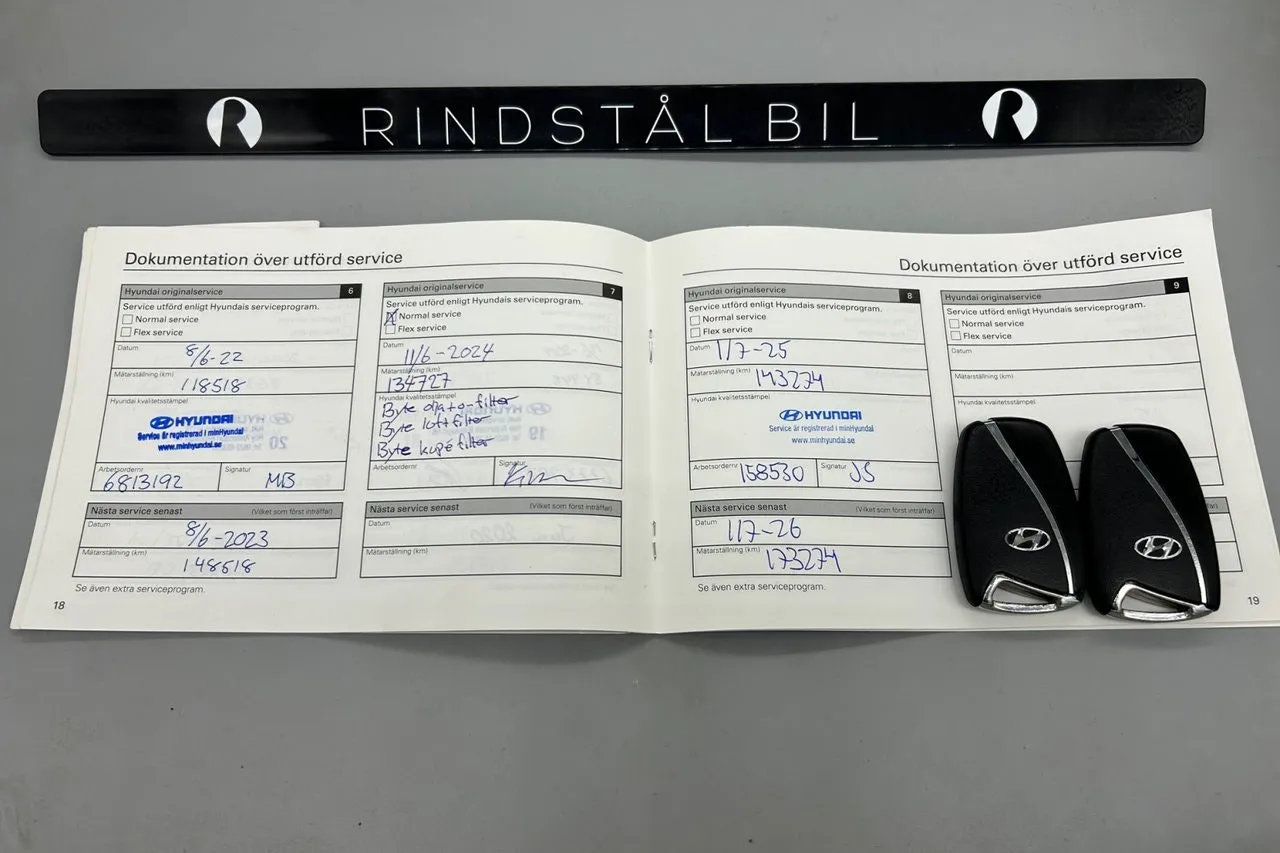 RINDSTÅL BIL
Dokumentation över utförd service
Hyundai originalservice 6
Service utförd enligt Hyundais serviceprogram.
Normal service
Flex service
Datum
8/6-22
Mätarställning (km)
118518
Hyundai kvalitetsstämpel
HYUNDAI
Service är registrerad i minHyundai
www.minhyundai.se
Arbetsordernr
6813192
Signatur
MB
Nästa service senast (Vilket som först inträffar)
Datum
8/6-2023
Mätarställning (km)
148518
Se även extra serviceprogram.
18
Hyundai originalservice 7
Service utförd enligt Hyundais serviceprogram.
Normal service
Flex service
Datum
11/6-2024
Mätarställning (km)
134727
Hyundai kvalitetsstämpel
Byte olja+o-filter
Byte luftfilter
Byte kupéfilter
Arbetsordernr
Signatur
Nästa service senast (Vilket som först inträffar)
Datum
Mätarställning (km)
Dokumentation över utförd service
Hyundai originalservice 8
Service utförd enligt Hyundais serviceprogram.
Normal service
Flex service
Datum
1/7-25
Mätarställning (km)
143274
Hyundai kvalitetsstämpel
HYUNDAI
Service är registrerad i minHyundai
www.minhyundai.se
Arbetsordernr
158530
Signatur
JS
Nästa service senast (Vilket som först inträffar)
Datum
1/7-26
Mätarställning (km)
173274
Se även extra serviceprogram.
Hyundai originalservice 9
Service utförd enligt Hyundais serviceprogram.
Normal service
Flex service
Datum
Mätarställning (km)
Hyundai kvalitetsstämpel
19